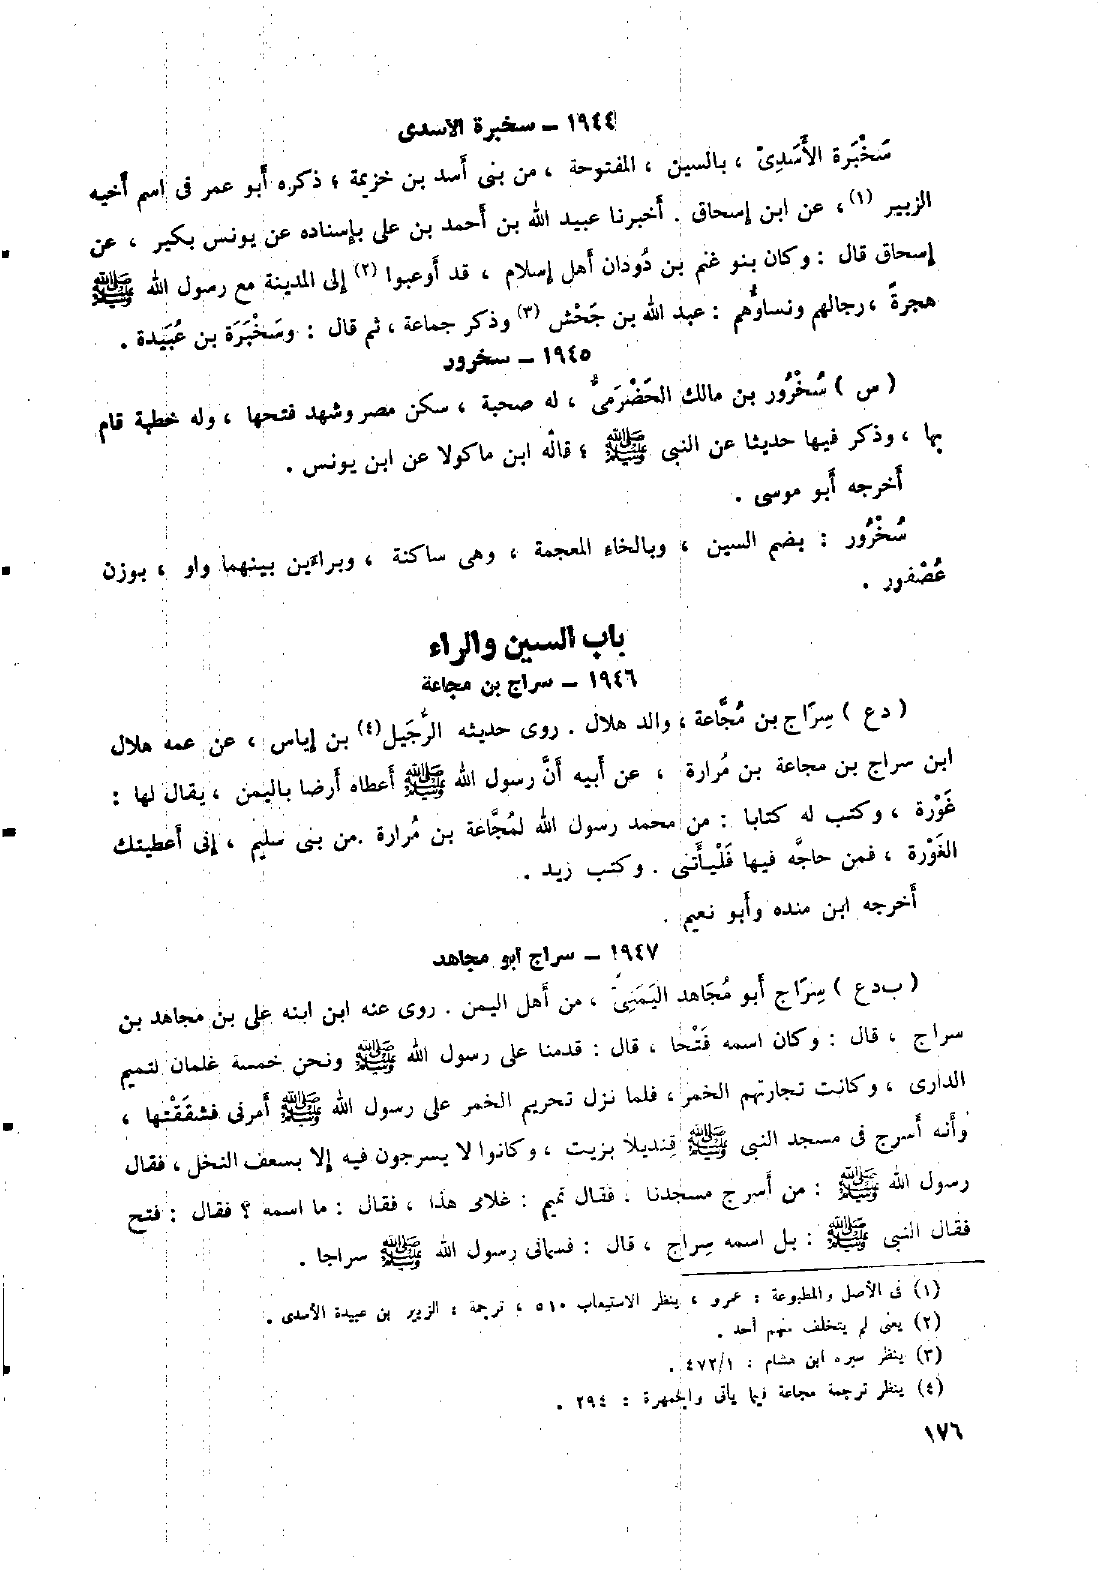 ١٩٤٤ – سخبرة الأسدى
سَخْبَرة الأَسَدِىّ ، بالسين ، المفتوحة ، من بنى أسد بن خزيمة ؛ ذكره أبو عمر فى اسم أخيه
الزبير (١) ، عن ابن إسحاق . أخبرنا عبيد الله بن أحمد بن على بإسناده عن يونس بكير ، عن
إسحاق قال : وكان بنو غنم بن دُودان أهل إسلام ، قد أوعبوا (٢) إلى المدينة مع رسول الله ﷺ
هجرةً ، رجالهم ونساؤُهم : عبد الله بن جَحْش (٣) وذكر جماعة ، ثم قال : وسَخْبَرَة بن عُبَيدة .
١٩٤٥ – سخرور
( س ) سُخْرُور بن مالك الحَضْرَمىُّ ، له صحبة ، سكن مصر وشهد فتحها ، وله خطبة قام
بها ، وذكر فيها حديثا عن النبى ﷺ ؛ قاله ابن ماكولا عن ابن يونس .
أخرجه أبو موسى .
سُخْرُور : بضم السين ، وبالخاء المعجمة ، وهى ساكنة ، وبراءين بينهما واو ، بوزن
عُصْفور .
باب السين والراء
١٩٤٦ – سراج بن مجاعة
( دع ) سِرَاج بن مُجَّاعة ، والد هلال . روى حديثه الرَّجَيل (٤) بن إياس ، عن عمه هلال
ابن سراج بن مجاعة بن مُرارة ، عن أبيه أنَّ رسول الله ﷺ أعطاه أرضا باليمن ، يقال لها :
غَوْرة ، وكتب له كتابا : من محمد رسول الله لمُجَّاعة بن مُرارة .من بنى سليم ، إنى أعطيتك
الغَوْرة ، فمن حاجَّه فيها فَلْيَأتنى . وكتب زيد .
أخرجه ابن منده وأبو نعيم .
١٩٤٧ – سراج أبو مجاهد
( ب دع ) سِرَاج أبو مُجَاهد اليَمَنِىّ ، من أهل اليمن . روى عنه ابن ابنه على بن مجاهد بن
سراج ، قال : وكان اسمه فَتْحا ، قال : قدمنا على رسول الله ﷺ ونحن خمسة غلمان لتميم
الدارى ، وكانت تجارتهم الخمر ، فلما نزل تحريم الخمر على رسول الله ﷺ أمرنى فشقَقْتها ،
وأنه أسرج فى مسجد النبى ﷺ قِنديلا بزيت ، وكانوا لا يسرجون فيه إلا بسعف النخل ، فقال
رسول الله ﷺ : من أسرج مسجدنا . فقال تميم : غلامى هذا ، فقال : ما اسمه ؟ فقال : فتح
فقال النبى ﷺ : بل اسمه سِراج ، قال : فسمانى رسول الله ﷺ سراجا .
(١) فى الأصل والمطبوعة : عمرو ، ينظر الاستيعاب ٥١٠ ، ترجمة : الزبير بن عبيدة الأسدى .
(٢) يعنى لم يتخلف منهم أحد .
(٣) ينظر سيره ابن هشام : ٤٧٢/١ .
(٤) ينظر ترجمة مجاعة فيما يأتى والجمهرة : ٢٩٤ .
١٧٦